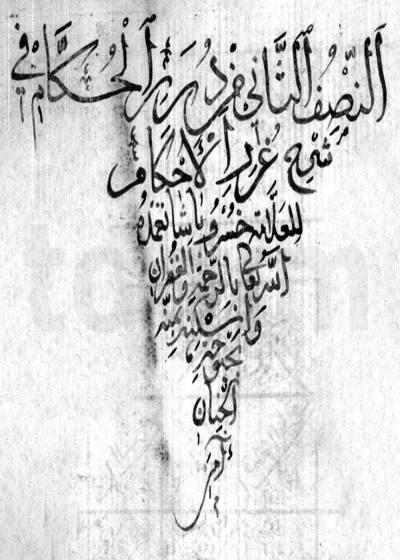 اَلنِّصْفُ الثَّاني مِنْ دُرَرِ الْحُكَّامِ في
شرح غُرَرِ الْأَحْكَامِ
للعلامة خسرو باشا تغمده
الله تعالى بالرحمة والغفران
واسكنه بمنه
الجنان
آمين